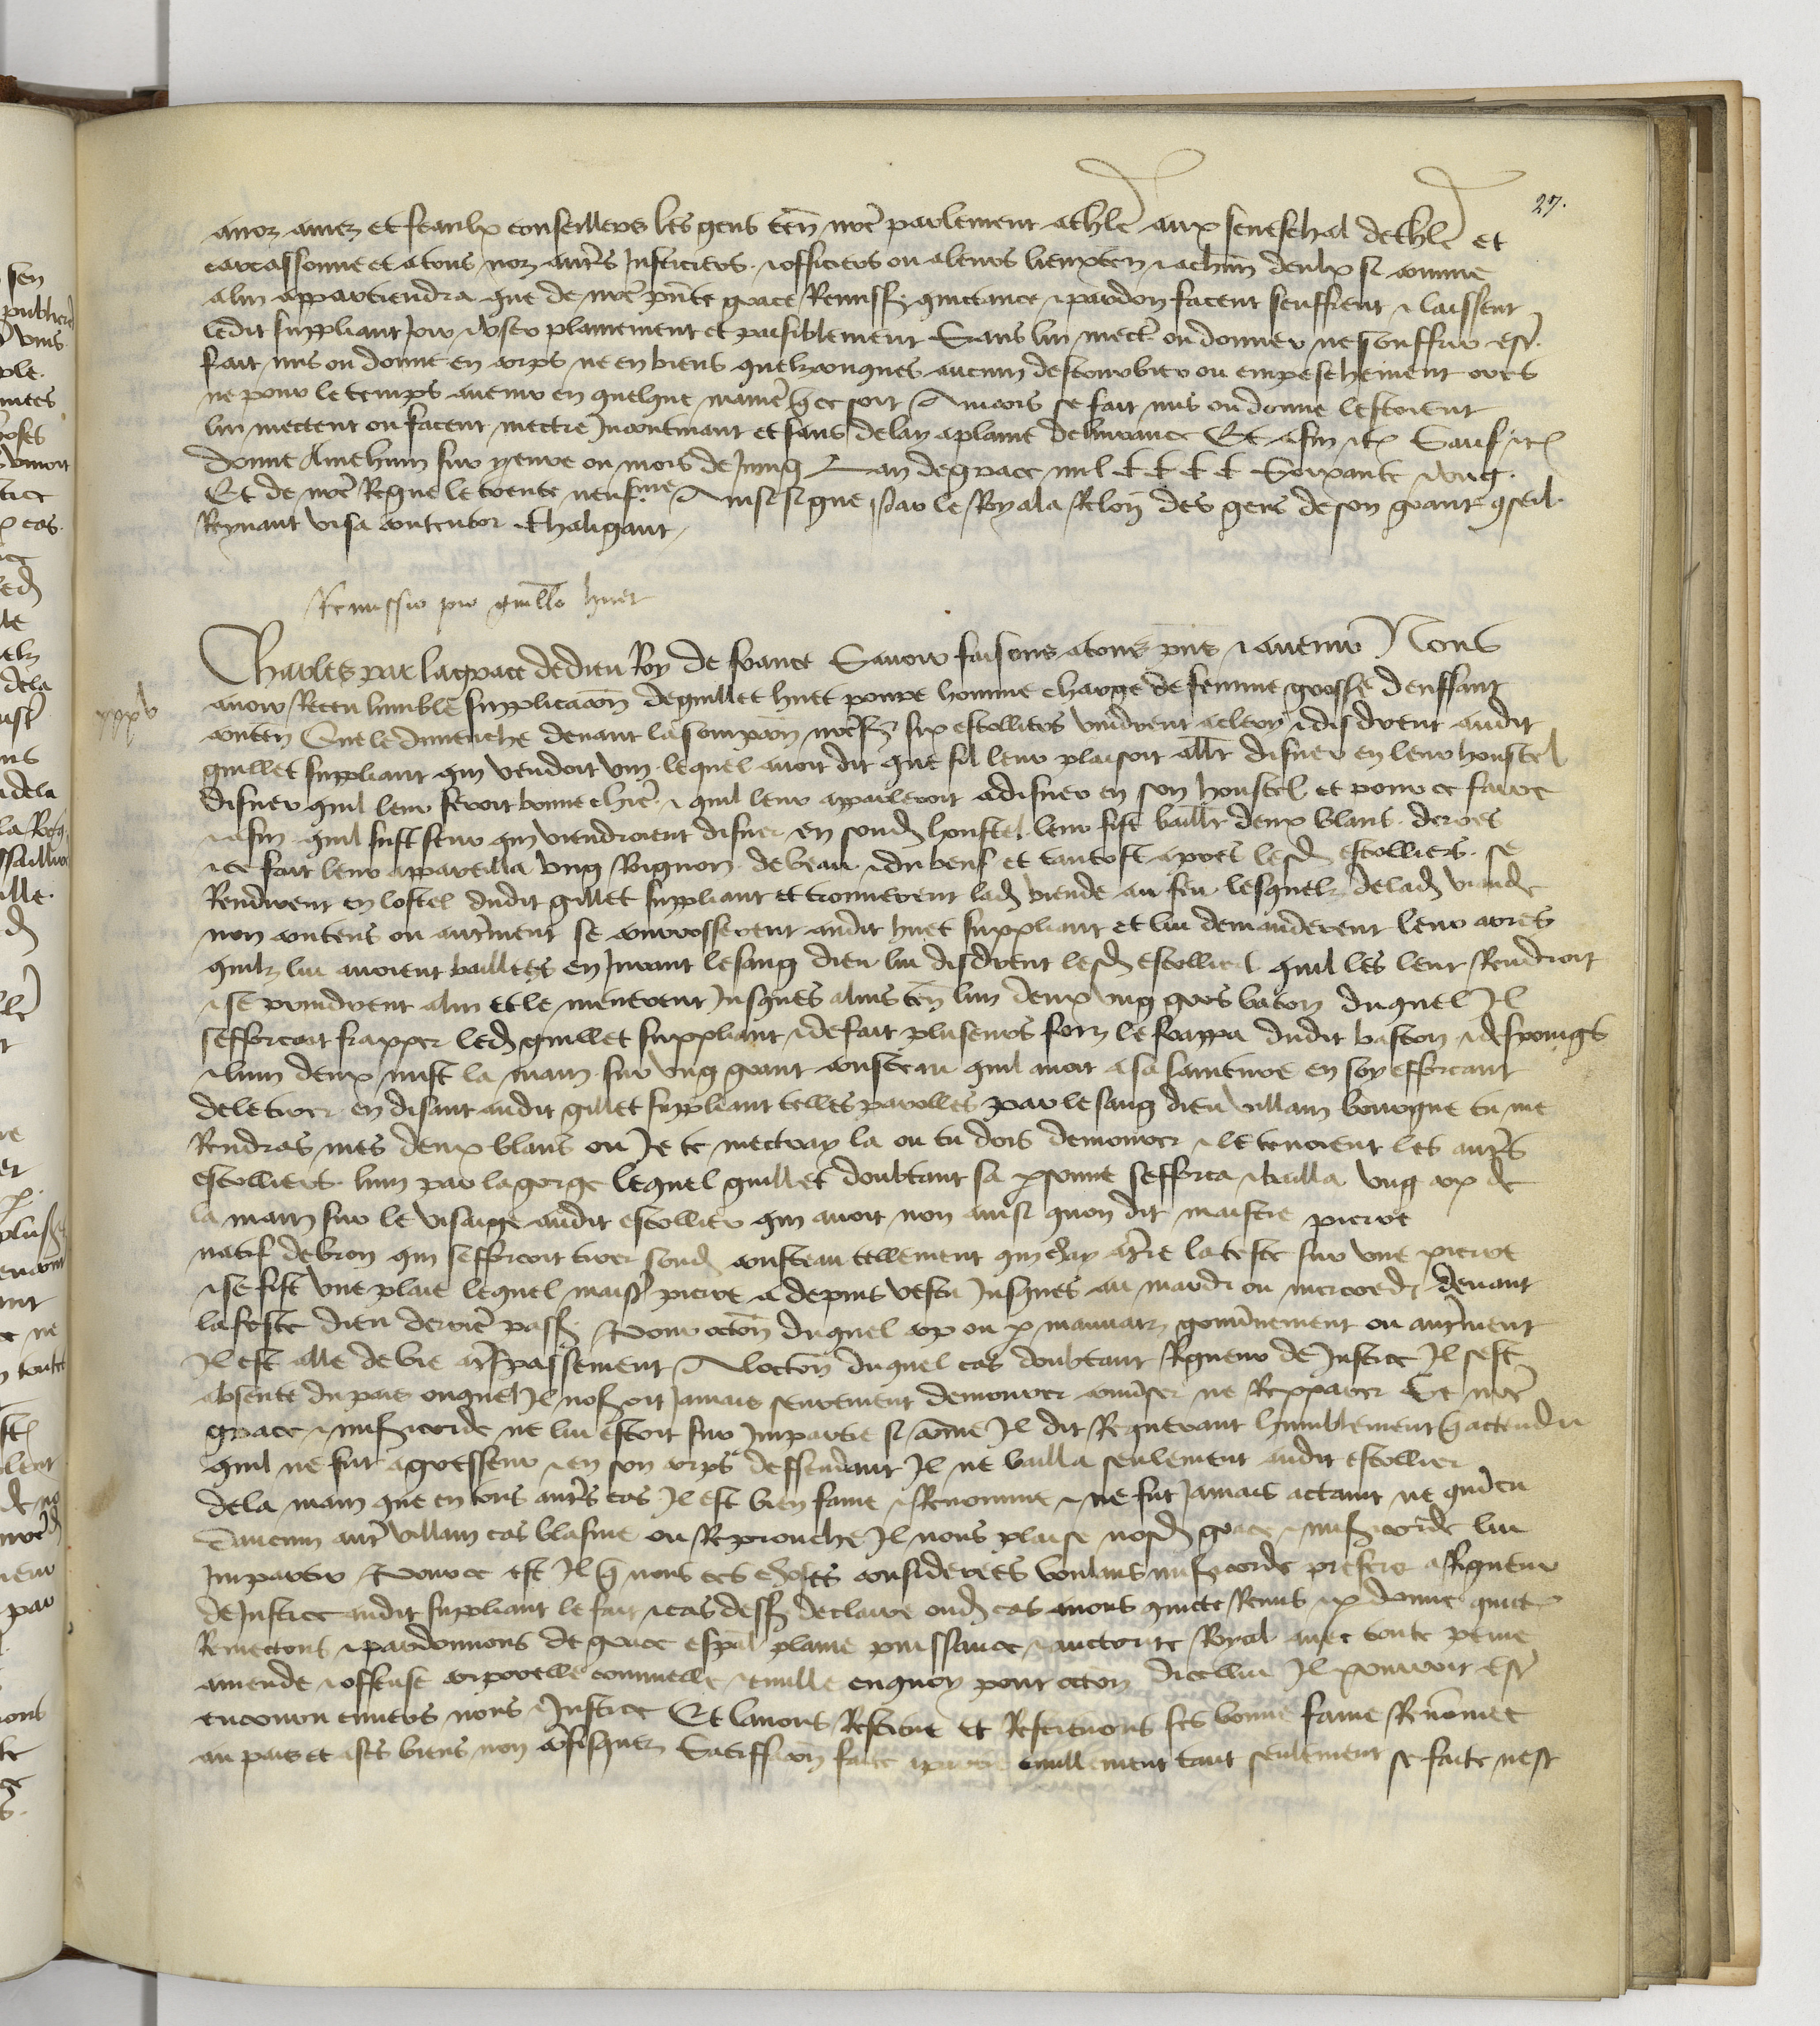 27.
a noz amez et feaulx conseillers les gens ten̄ nr̄e parlement a thl̄e aux seneschal de thl̄e et
carcassonne et a tous noz autr̄s Justiciers & officiers ou a leurs lieuxten̄ & a chūn deulx si comme
a lui appartiendra que de nr̄e pn̄te grace Remiss̄ quictance & pardon facent seuffrent & laissent
ledit suppliant Joir & user plainement et paisiblement Sans lui mectr̄ ou donner ne souffrir estr̄
fait mis ou donne en corps ne en biens quelzconques aucun destourbier ou empeschement ores
ne pour le temps auenir en quelque manier̄ q̄ ce soit Aincois se fait mis ou donne lestoient
lui mectent ou facent mectre Incontinant et sans delay a plaine deliurance Et afin etc̄ Sauf etc̄
donne Amehun sur yeure ou mois de Juing Lan de grace mil CCCC Soixante & ung.
Et de nr̄e Regne le trente neufme Ainsi signe par le Roy a la Relon̄ des gens de son grant cōseil.
Reynaut visa contentor Chaligant
Remissio pro guill̄o huet
Charles par la grace de dieu Roy de france Sauoir faisons a tous pn̄s & auenir Nous
auoir Receu lumble supplicacōn de guillet huet poure homme charge de femme grosse denffant
conten̄ Que le dimenche deuant lascompcōn nr̄e s̄ six escolliers vindrent a clery & disdrent audit
guillet suppliant qui vendoit vin lequel auoit dit que sil leur plaisoit aller disner en leur houstel
disner quil leur feroit bonne chier̄ & quil leur appareleroit a disner en son houstel et pour ce faire
& afin quil fust seur qui viendroient disner en sond̄ houstel leur fist baill̄r deux blans derres
& ce fait leur appareilla ung Roignon de beau & du beuf et tantost apres lesd̄ escolliers se
Rendirent en lostel dudit gillet suppliant et trouuerent lad̄ viende au feu lesquelz de lad̄ viande
non contens ou autr̄ment se courrosserent audit huet suppliant et lui demanderent leur arres
quilz lui auoient baillees en Jurant le sang dieu lui disdrent lesd̄ escolliers quil les leur Rendroit
& se prindrent a lui et le menerent Jusques a luis ten̄ lun deulx ung gros baton duquel Il
sefforcoit frapper led̄ guillet suppliant & de fait pluseurs foiz le frappa dudit baston & des poings
& lun deulx mist la main sur ung grant cousteau quil auoit a sa sainture en soy efforcant
de le tirer en disant audit gillet suppliant telles parolles par le sang dieu villain bourgne tu me
Rendras mes deux blans ou Je te mectray la ou tu dois demourer & le tenoient les autr̄s
escolliers lun par la gorge lequel guillet doubtant sa p̄sonne sefforca & bailla ung cop de
la main sur le visaige audit escollier qui auoit non ainsi quon dit maistre pierre
natif de bron qui sefforcoit tirer sond̄ cousteau tellement qui chay arr̄re la teste sur une pierre
& se fist une plaie lequel maistr̄ pierre a depuis vescu Jusques au mardi ou mercredi deuant
la feste dieu dernier̄ pass̄ Pour occon̄ duquel cop ou p mauuaiz gouūnement ou autr̄ment
Il est alle de vie a tr̄spassement A loccon̄ duquel cas doubtant Rigueur de Justice Il sest
absente du pais ouquel Il nos̄oit Jamais seurement demourer conūser ne Repparer Se nr̄e
grace & mis̄icorde ne lui estoit sur Impartie si com̄e Il dit Requerant humblement q̄ actendu
quil ne fut agresseur & en son corps deffendant Il ne bailla seulement audit escollier
de la main que en tous autr̄s cas Il est bien fame & Renomme & ne fut Jamais actaint ne conūcu
daucun autr̄ villain cas blasme ou Reprouche Il nous plaise nosd̄ grace & mis̄icorde lui
Impartir Pource est Il q̄ nous ces choses considerees voulans mis̄icorde preferer a Rigueur
de Justice audit suppliant le fait & cas dess̄ declaire oud̄ cas auons quicte Remis & p donne quict̄
Remectons & pardonnons de grace esp̄al plaine puissance & auctorite Royal auec toute peine
amende & offense corporelle criminelle & ciuille en quoy pour occon̄ dicellui Il pourroit estr̄
encouru enuers nous & Justice Et lauons Restitue et Restituons a ses bonne fame Renōmee
au pais et a ses biens non cōfisquez Satiffacion faicte a partie ciuillement tant seulement se faicte nest